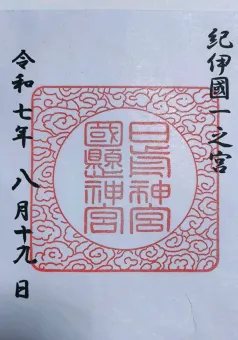 紀伊國一之宮
日前神宮
國懸神宮
令和七年 八月十九日